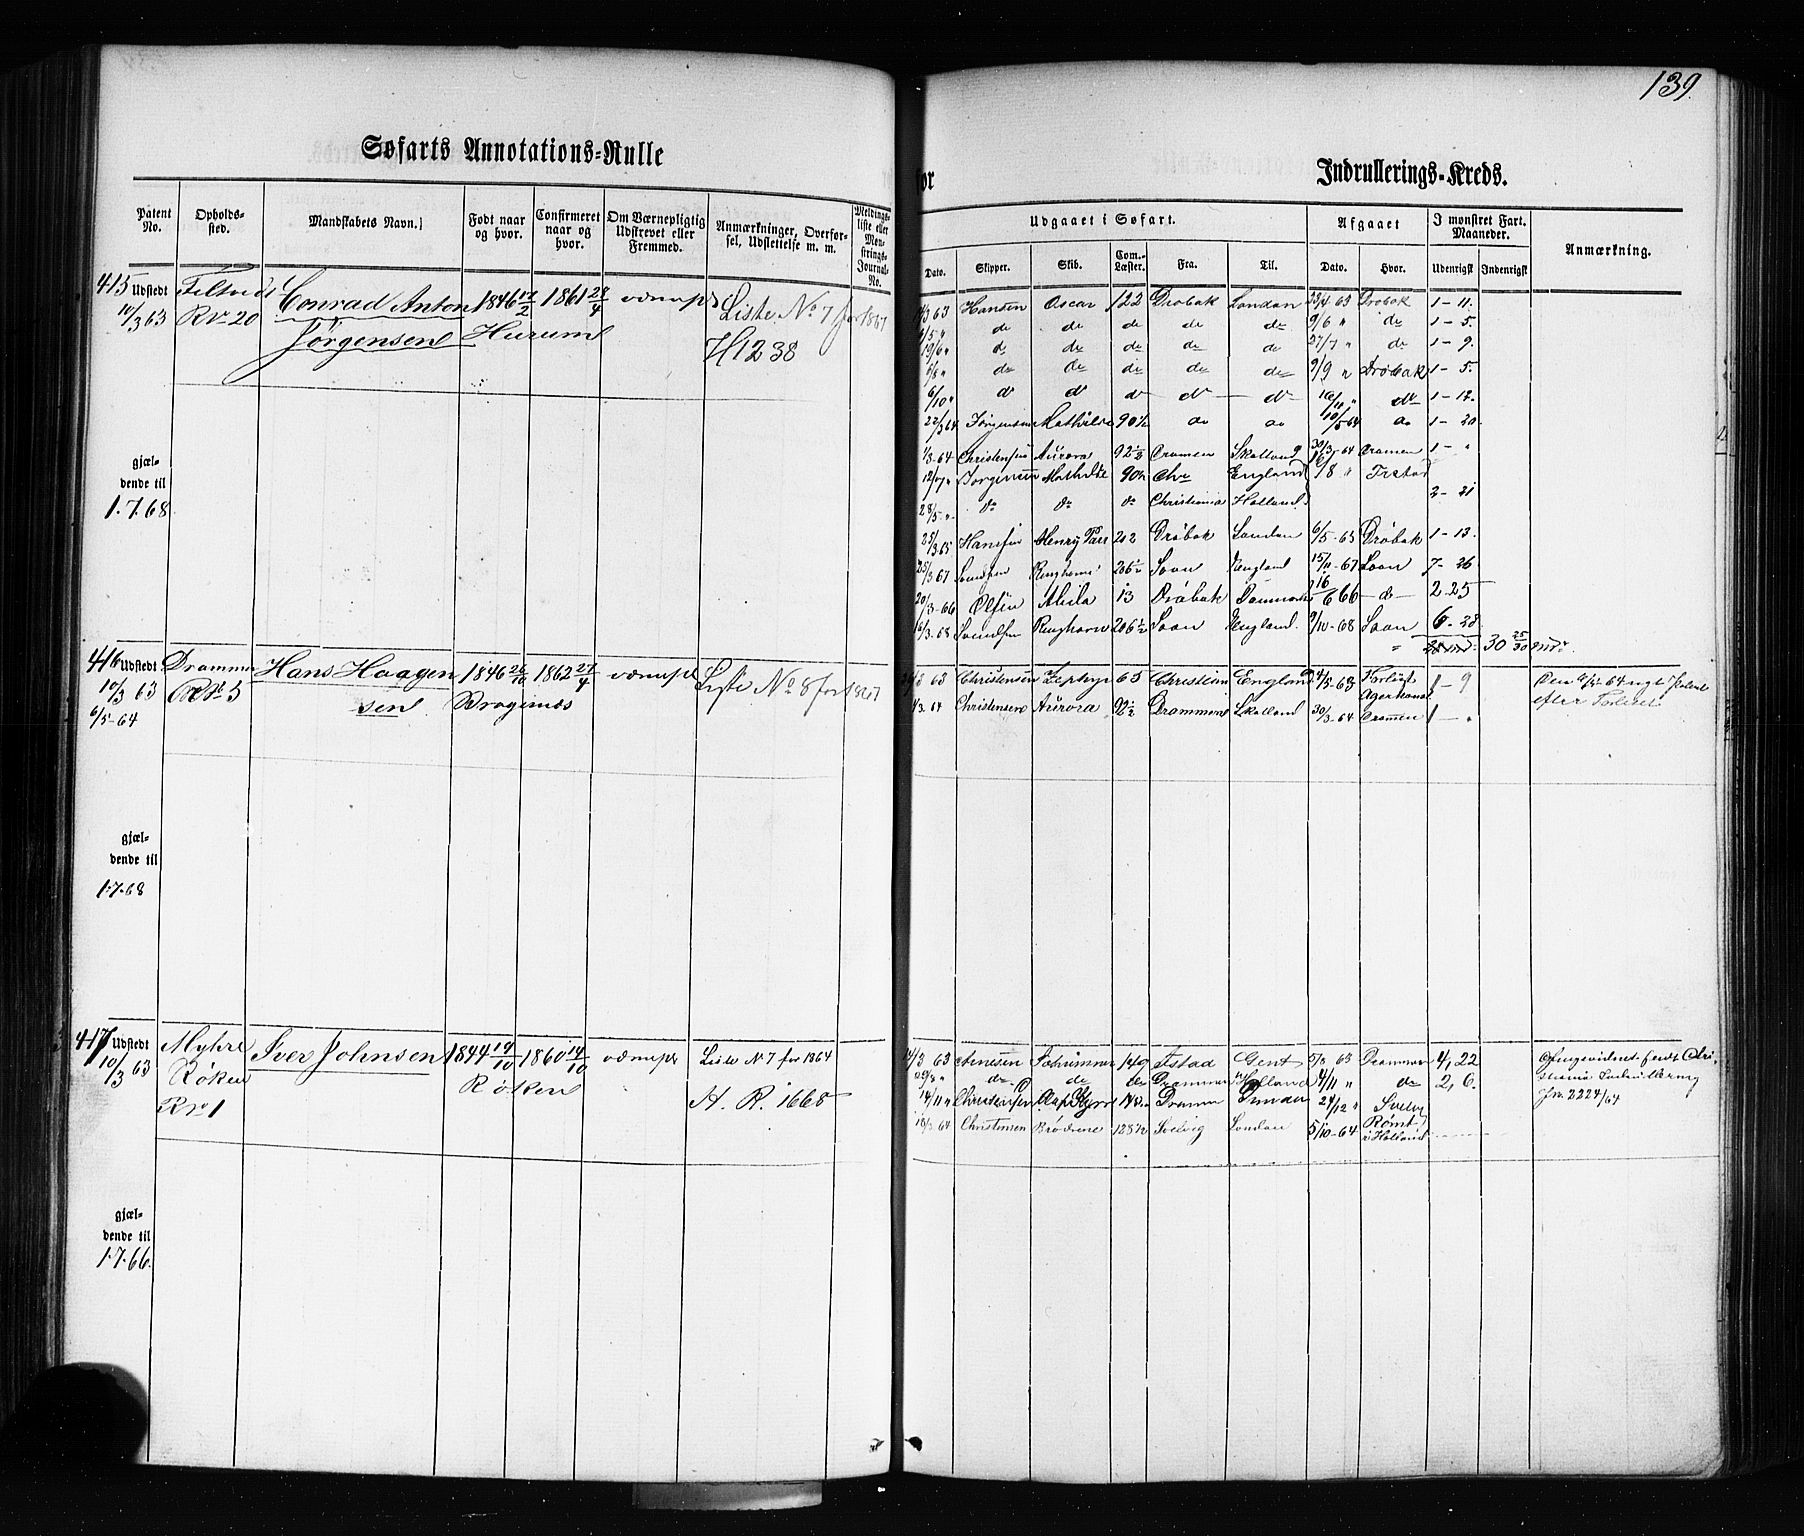 139.
Søfarts Annotations-Rulle
for Indrullerings-Kreds.
Patent No. Opholds-sted. Mandskabets Navn. Født naar og hvor. Confirmeret naar og hvor. Om Værnepligtig Udskrevet eller Fremmed. Anmærkninger, Overførsel, Udslettelse m. m. Meldings-liste eller Mønstrings-Journal-No.
Udgaaet i Søfart. Afgaaet I mønstret Fart. Maaneder. Anmærkning.
Dato. Skipper. Skib. Com. Læster. Fra. Til. Dato. Hvor. Udenrigsk Indenrigsk
415 Udstedt 14/3 63
Rr 20
Conrad Anton Jørgensen
1846 17/2 Hurum
1861 28/4
Liste No 7 for 1867
H1238
gjældende til 1.7.68
3 63 Hansen Oscar 122 Drøbak London 22/4 63 Drøbak 1-11.
6/5 " do do do do do 9/6 " do 1-5.
19/6 " do do do do do 27/7 " do 1-9.
6/8 " do do do do do 9/9 " Drøbak 1-5.
6/10 " do do do do do do 1-12.
22/3 64 Jørgensen Mathilde 90½ do do 10/5 64 do 1-20
/3-64 Christensen Aurora 92½ Dramen Skotland 30/3-64 Dramen 1- "
12/7 " Jørgensen Mathilde 90½ England /8 "
28/5 " do do do Christiania Holland 2-21
25/3 65 Hansen Henry Parr 202 Drøbak London 6/5-65 Drøbak 1-13.
25/3 67 Svendsen Ringhorn 206½ Soon England 15/11-67 Soon 7-26
20/3-66 Olsen 13 Drøbak Danmark 6 66 -do- 2 25
16/3-68 Svendsen Ringhorn 206½ Soon England. 9/10-68 Soon 6-28
30 25/30
416 Udstedt 10/3 63
6/5-64
Drammen
No 5
Hans Haagensen
1846 26/10 Bragernes
1862 27/4
Liste No 8 for 1867
gjældende til 1.7.68
3 63 Christensen Zephyr 65 Christiania England 4/5-63 Forliist 1-9
3.64 Christensen Aurora 92½ Drammen Skotland 30/3-64 Dramen 1- "
efter Forliset
417 Udstedt 10/3 63
Myhre Røken
Rr 1
Iver Johnsen
1844 19/10 Røken
1860 14/10
Liste N 7 for 1864
A. R. 1668
gjældende til 1.7.66.
14/3 63 Arnesen 149 Gent 5/8 63 Drammen 4, 22
29/8 " do do do Drammen Holland 4/11 " do 2, 6.
14/11 " Christensen Dramen 24/12 " Svelvig
18/3 64 Christensen Brødrene 128½ Svelvig London 5/10-64
i Holland
Indrullering
Jn. 2224/64